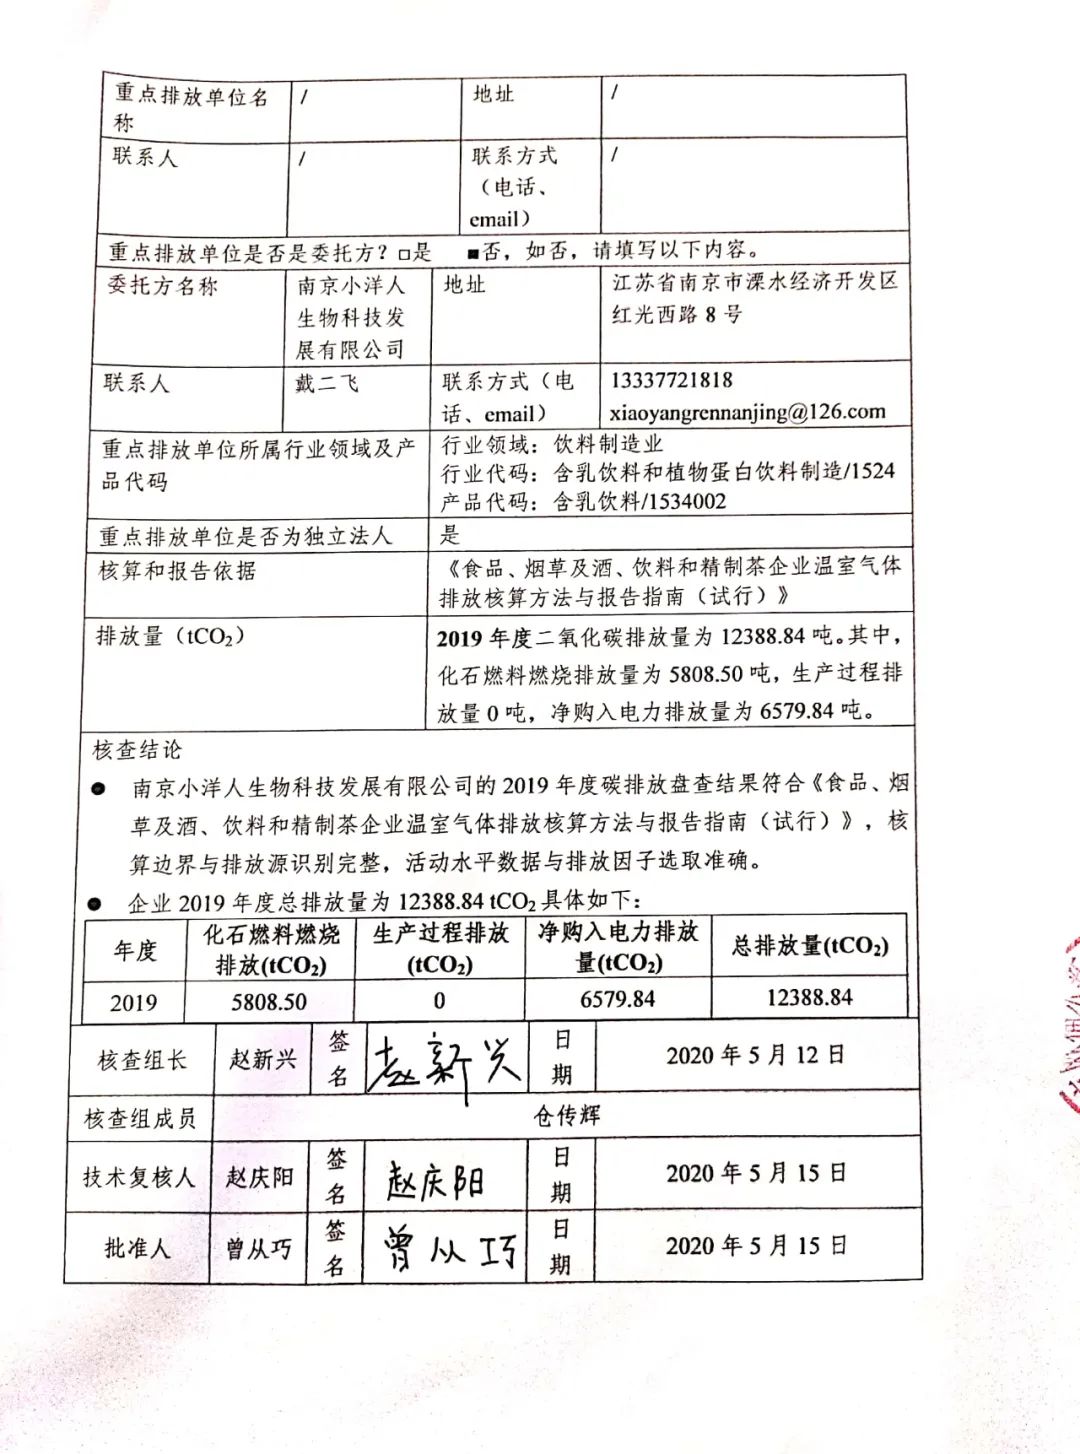 重点排放单位名 / 地址 /
称
联系人 / 联系方式 /
（电话、
email）
重点排放单位是否是委托方？□是 ■否，如否，请填写以下内容。
委托方名称 南京小洋人 地址 江苏省南京市溧水经济开发区
生物科技发 红光西路 8 号
展有限公司
联系人 戴二飞 联系方式（电 13337721818
话、email） xiaoyangrennanjing@126.com
重点排放单位所属行业领域及产 行业领域：饮料制造业
品代码 行业代码：含乳饮料和植物蛋白饮料制造/1524
产品代码：含乳饮料/1534002
重点排放单位是否为独立法人 是
核算和报告依据 《食品、烟草及酒、饮料和精制茶企业温室气体
排放核算方法与报告指南（试行）》
排放量（tCO₂） 2019 年度二氧化碳排放量为 12388.84 吨。其中，
化石燃料燃烧排放量为 5808.50 吨，生产过程排
放量 0 吨，净购入电力排放量为 6579.84 吨。
核查结论
● 南京小洋人生物科技发展有限公司的 2019 年度碳排放盘查结果符合《食品、烟
草及酒、饮料和精制茶企业温室气体排放核算方法与报告指南（试行）》，核
算边界与排放源识别完整，活动水平数据与排放因子选取准确。
● 企业 2019 年度总排放量为 12388.84 tCO₂ 具体如下：
年度 化石燃料燃烧 生产过程排放 净购入电力排放 总排放量(tCO₂)
排放(tCO₂) (tCO₂) 量(tCO₂)
2019 5808.50 0 6579.84 12388.84
核查组长 赵新兴 签名 赵新兴 日期 2020 年 5 月 12 日
核查组成员 仓传辉
技术复核人 赵庆阳 签名 赵庆阳 日期 2020 年 5 月 15 日
批准人 曾从巧 签名 曾从巧 日期 2020 年 5 月 15 日